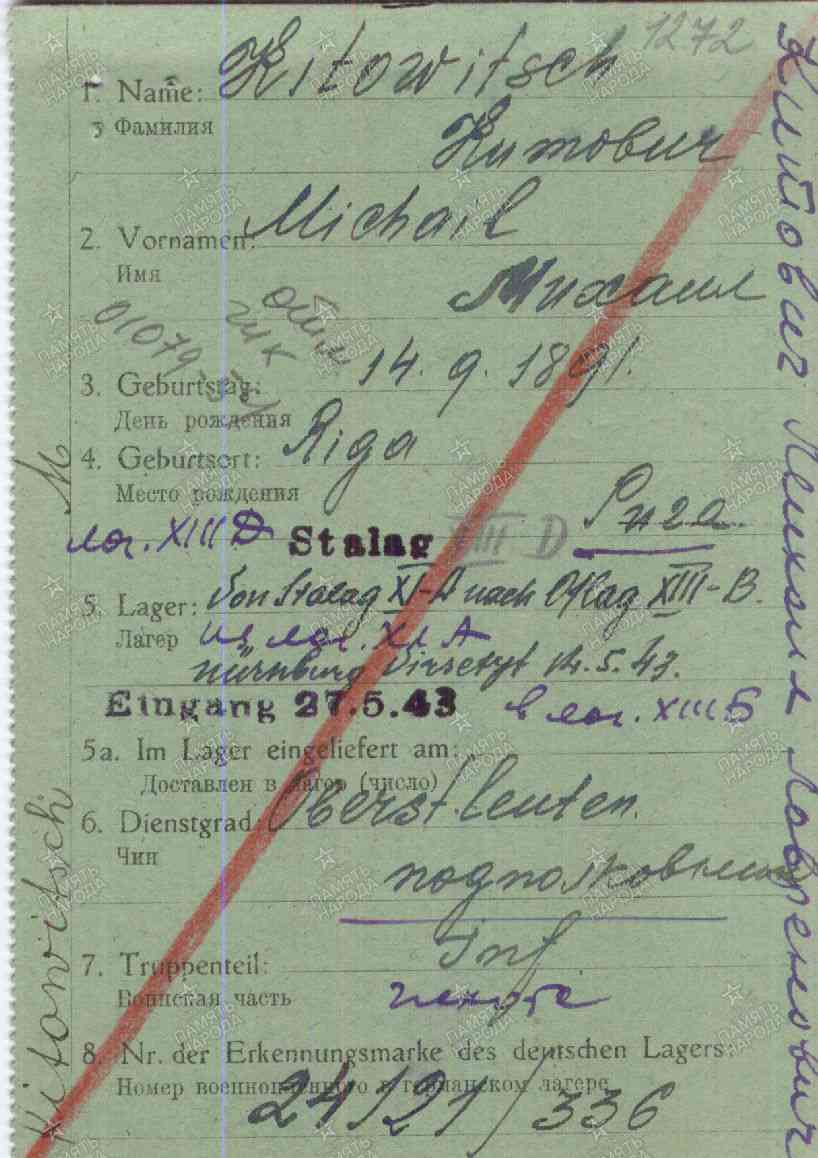 1272
1. Name: Kitowitsch
Фамилия
Китович
2. Vornamen: Michail
Имя
Михаил
3. Geburtstag: 14. 9. 1891.
День рождения
4. Geburtsort: Riga
Место рождения
Рига
лаг. XIII D Stalag XIII D
5. Lager: Von Stalag XI-A nach Oflag XIII-B.
Лагер из лаг. XI A
Nürnburg 5. 43.
Eingang 27.5.43 в лаг. XIII Б
5a. Im Lager eingeliefert am:
Доставлен в лагер (число)
6. Dienstgrad: Oberst.leuten.
Чин
подполковник
7. Truppenteil: Inf
Воинская часть пехота
8. Nr. der Erkennungsmarke des deutschen Lagers:
Номер военнопленного в германском лагере
24/21/336
Kitowitsch M
Китович Михаил Лавренович
ПАМЯТЬ НАРОДА